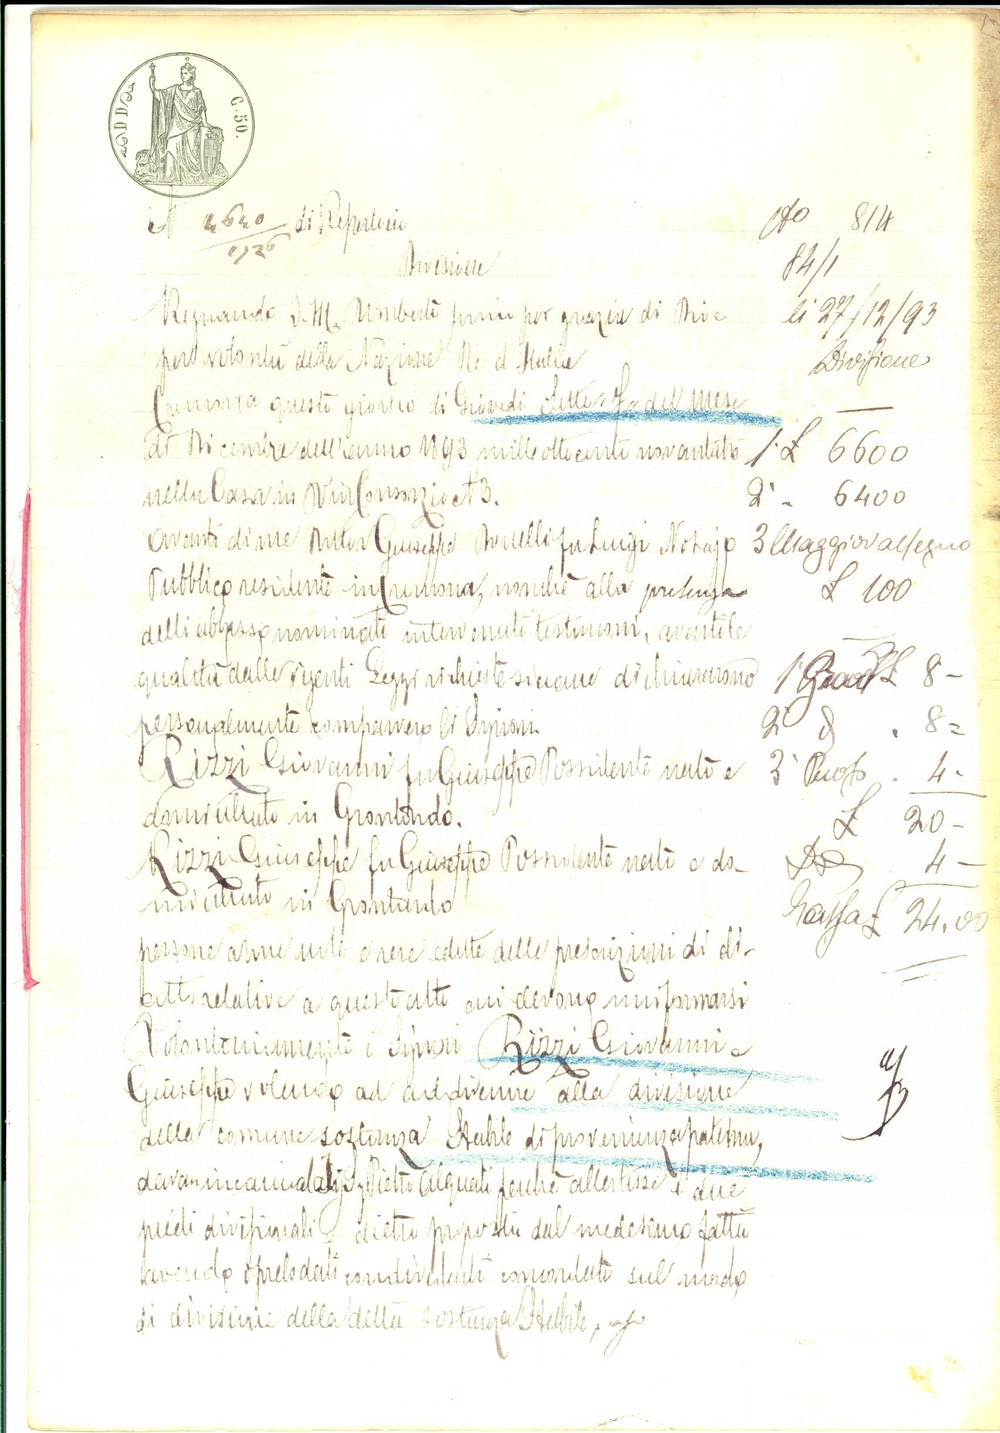 C. 50.
N 2640 di Repertorio
1726
Divisione
Regnando S. M. Umberto primo per grazia di Dio e
per volontà della Nazione Re d'Italia
Cremona questo giorno di Giovedì Sette 7 del mese
di Dicembre dell'anno 1893 mille ottocento novantatre
nella Casa in Via Consorzio N 3.
Avanti di me Dottor Giuseppe fu Luigi Notajo
Pubblico residente in Cremona, nonché alla presenza
delli abbasso nominati intervenuti testimoni, aventi le
qualità dalle vigenti Leggi richieste siccome dichiararono
personalmente comparvero li Signori
Rizzi Giovanni fu Giuseppe Possidente nato e
domiciliato in Grontardo.
Rizzi Giuseppe fu Giuseppe Possidente nato e do-
miciliato in Grontardo
persone a me note e rese edotte delle prescrizioni di di-
ritto relative a questo atto cui devono uniformarsi
Volontariamente i Signori Rizzi Giovanni e
Giuseppe volendo addivenire alla divisione
della comune sostanza Stabile di provenienza paterna,
Pietro perché allestisse i due
piedi divisionali e dietro proposta dal medesimo fatta
avendo i prelodati condividenti concordato sul modo
di divisione della detta sostanza Stabile,
No 814
84/1
li 27/12/93
Divisione
1° £ 6600
2° - 6400
3 Maggior assegno
£ 100
1° £ 8 -
2° . 8 =
3° . 4 -
£ 20 -
4 -
Tassa £ 24.00